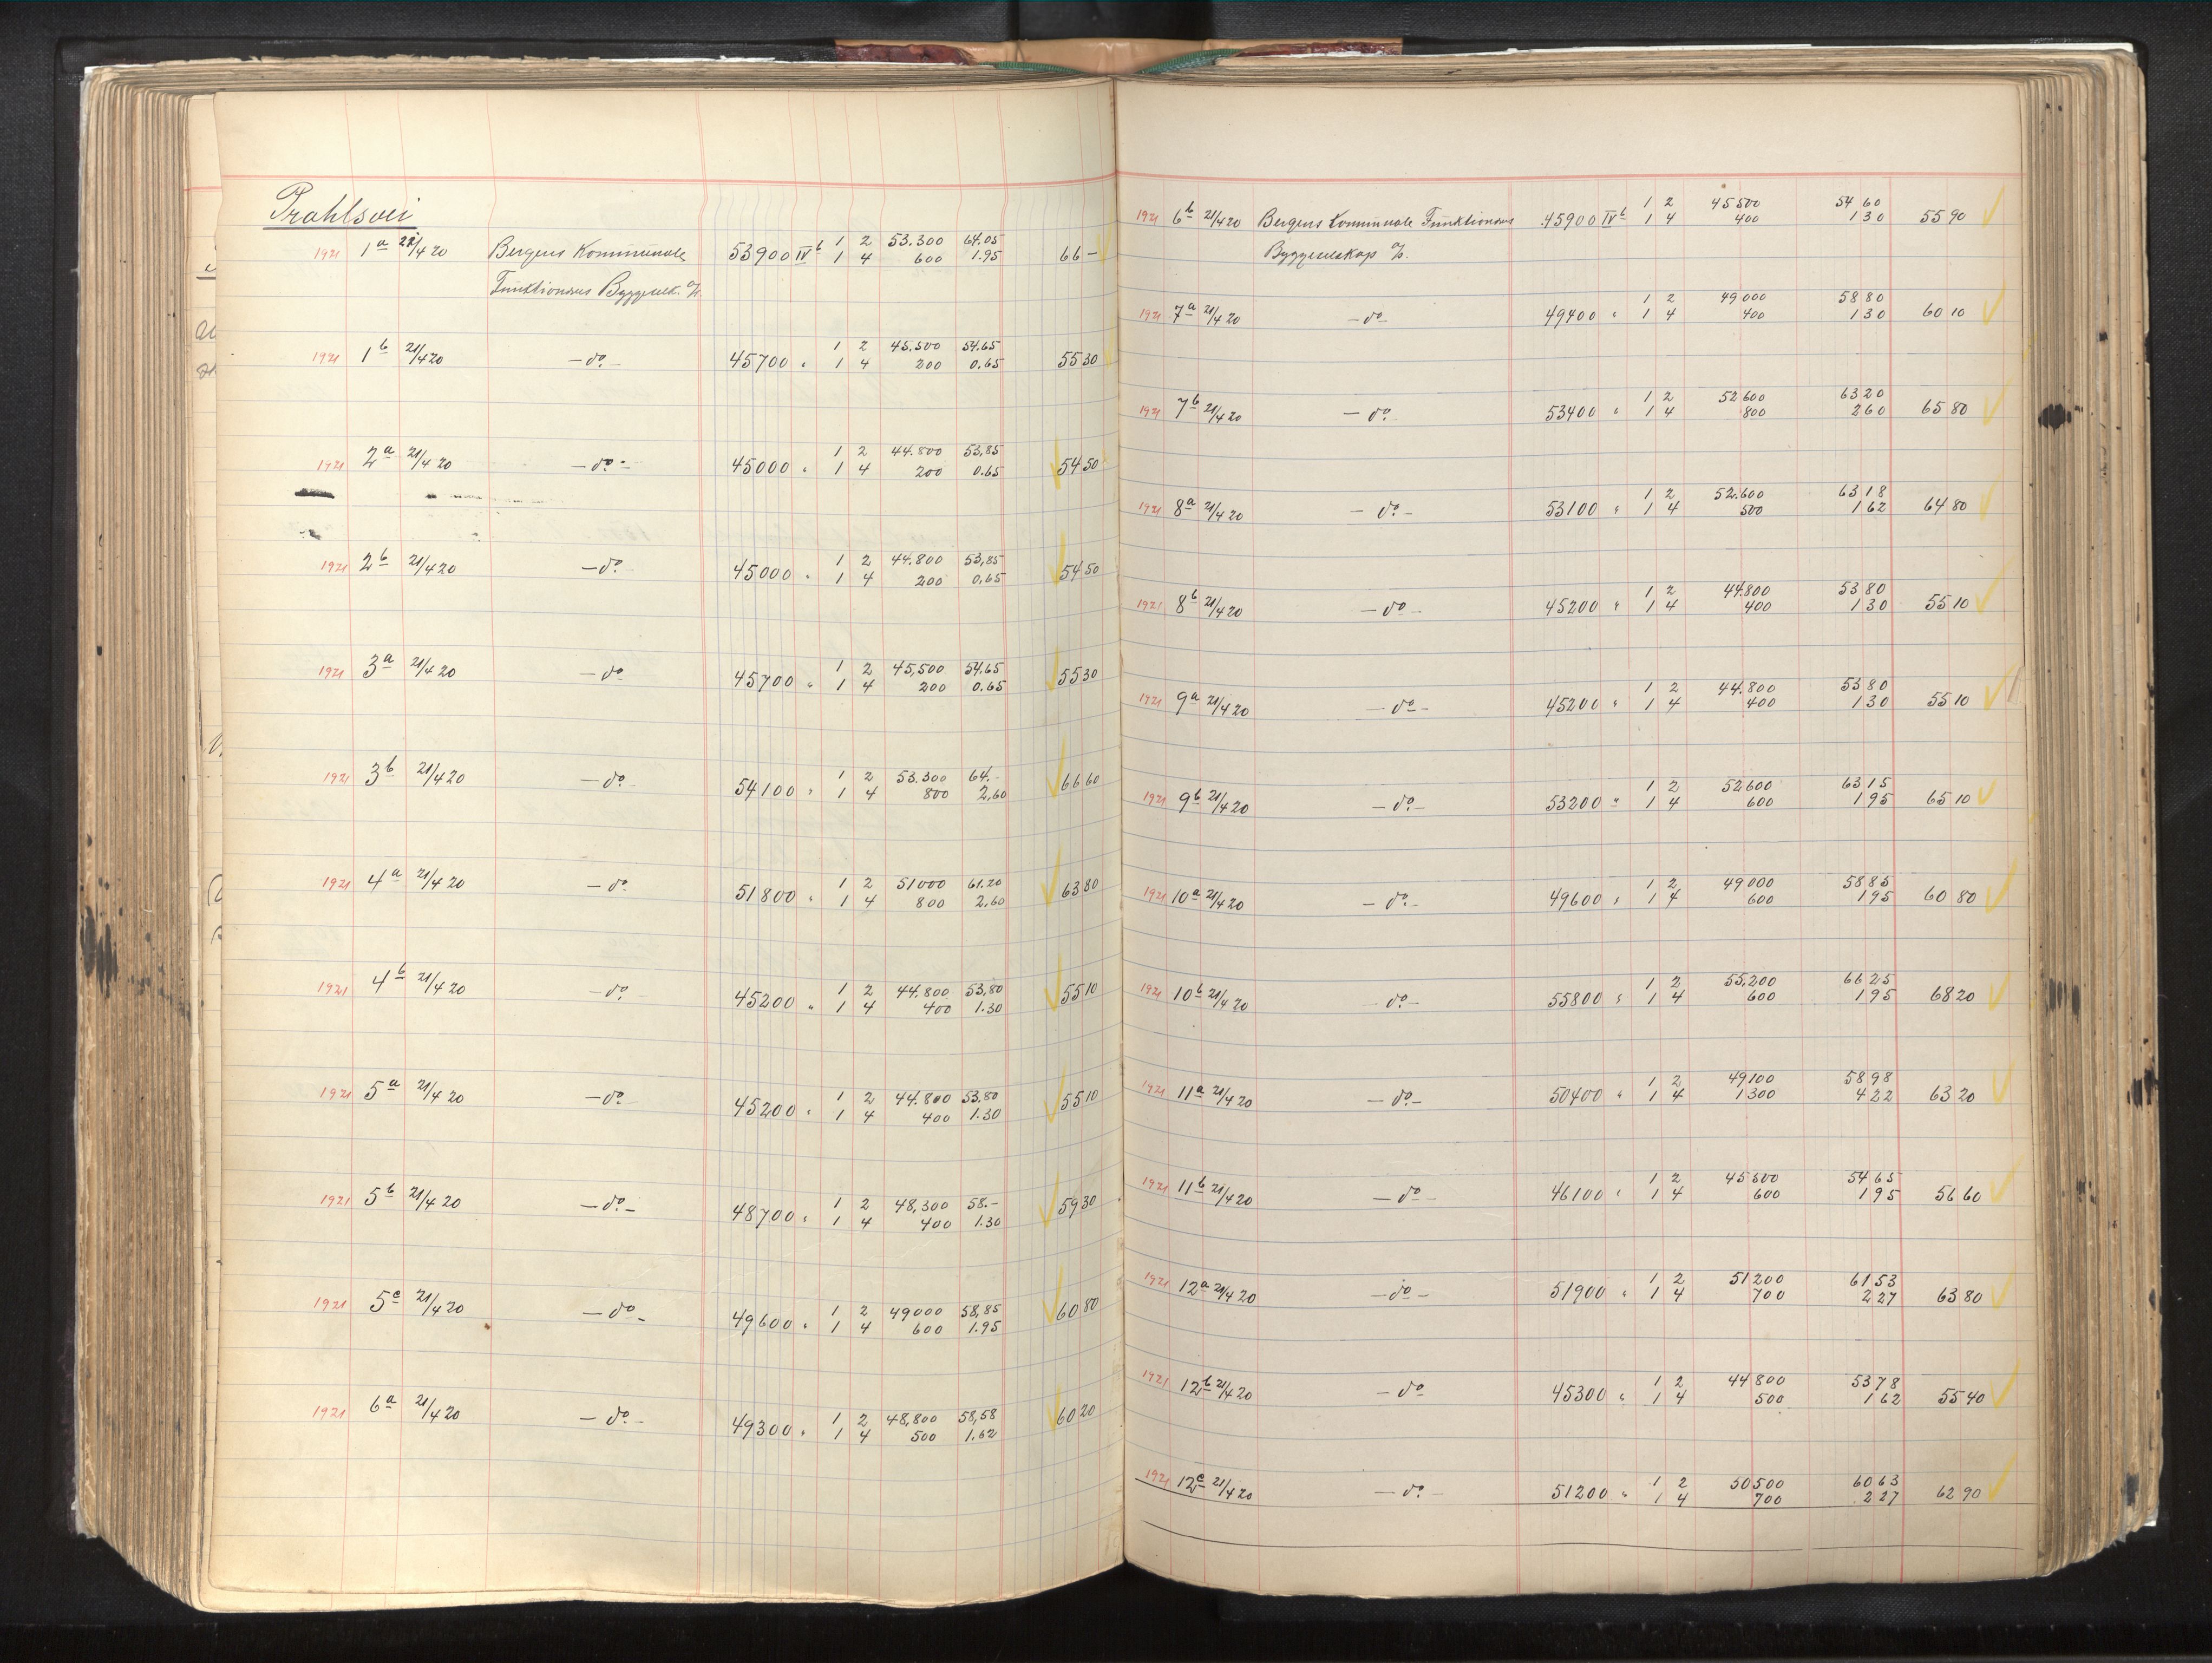 Prahlsvei
1921 1a 21/4 20 Bergens Kommunale 53900 IVb 1 2 53.300 64.05
1 4 600 1.95 66 –
Funktionærs Byggeselk. A/L
1921 1b 21/4 20 – do – 45700 " 1 2 45.500 54.65
1 4 200 0.65 55 30
1921 2a 21/4 20 – do – 45000 " 1 2 44.800 53,85
1 4 200 0.65 54 50
1921 2b 21/4 20 – do 45000 " 1 2 44.800 53,85
1 4 200 0,65 54 50
1921 3a 21/4 20 – do 45700 " 1 2 45,500 54.65
1 4 200 0.65 55 30
1921 3b 21/4 20 – do 54100 " 1 2 53.300 64.-
1 4 800 2,60 66 60
1921 4a 21/4 20 – do 51800 " 1 2 51000 61.20
1 4 800 2,60 63 80
1921 4b 21/4 20 – do 45200 " 1 2 44.800 53,80
1 4 400 1.30 55 10
1921 5a 21/4 20 – do 45200 " 1 2 44.800 53,80
1 4 400 1.30 55 10
1921 5b 21/4 20 – do – 48700 " 1 2 48,300 58.-
1 4 400 1.30 59 30
1921 5c 21/4 20 – do – 49600 " 1 2 49000 58,85
1 4 600 1.95 60 80
1921 6a 21/4 20 – do – 49300 " 1 2 48,800 58,58
1 4 500 1.62 60 20
1921 6b 21/4 20 Bergens Kommunale Funktionærs 45900 IVb 1 2 45500 54 60
1 4 400 1 30 55 90
Byggeselskap A/L.
1921 7a 21/4 20 – do – 49400 " 1 2 49000 58 80
1 4 400 1 30 60 10
1921 7b 21/4 20 – do – 53400 " 1 2 52600 63 20
1 4 800 2 60 65 80
1921 8a 21/4 20 – do – 53100 " 1 2 52.600 63 18
1 4 500 1 62 64 80
1921 8b 21/4 20 – do – 45200 " 1 2 44.800 53 80
1 4 400 1 30 55 10
1921 9a 21/4 20 – do – 45200 " 1 2 44.800 53 80
1 4 400 1 30 55 10
1921 9b 21/4 20 – do – 53200 " 1 2 52600 63 15
1 4 600 1 95 65 10
1921 10a 21/4 20 – do – 49600 " 1 2 49000 58 85
1 4 600 1 95 60 80
1921 10b 21/4 20 – do – 55800 " 1 2 55,200 66 25
1 4 600 1 95 68 20
1921 11a 21/4 20 – do – 50400 " 1 2 49100 58 98
1 4 1300 4 22 63 20
1921 11b 21/4 20 – do – 46100 " 1 2 45500 54 65
1 4 600 1 95 56 60
1921 12a 21/4 20 – do – 51900 " 1 2 51200 61 53
1 4 700 2 27 63 80
1921 12b 21/4 20 – do 45300 " 1 2 44800 53 78
1 4 500 1 62 55 40
1921 12c 21/4 20 – do – 51200 " 1 2 50500 60 63
1 4 700 2 27 62 90